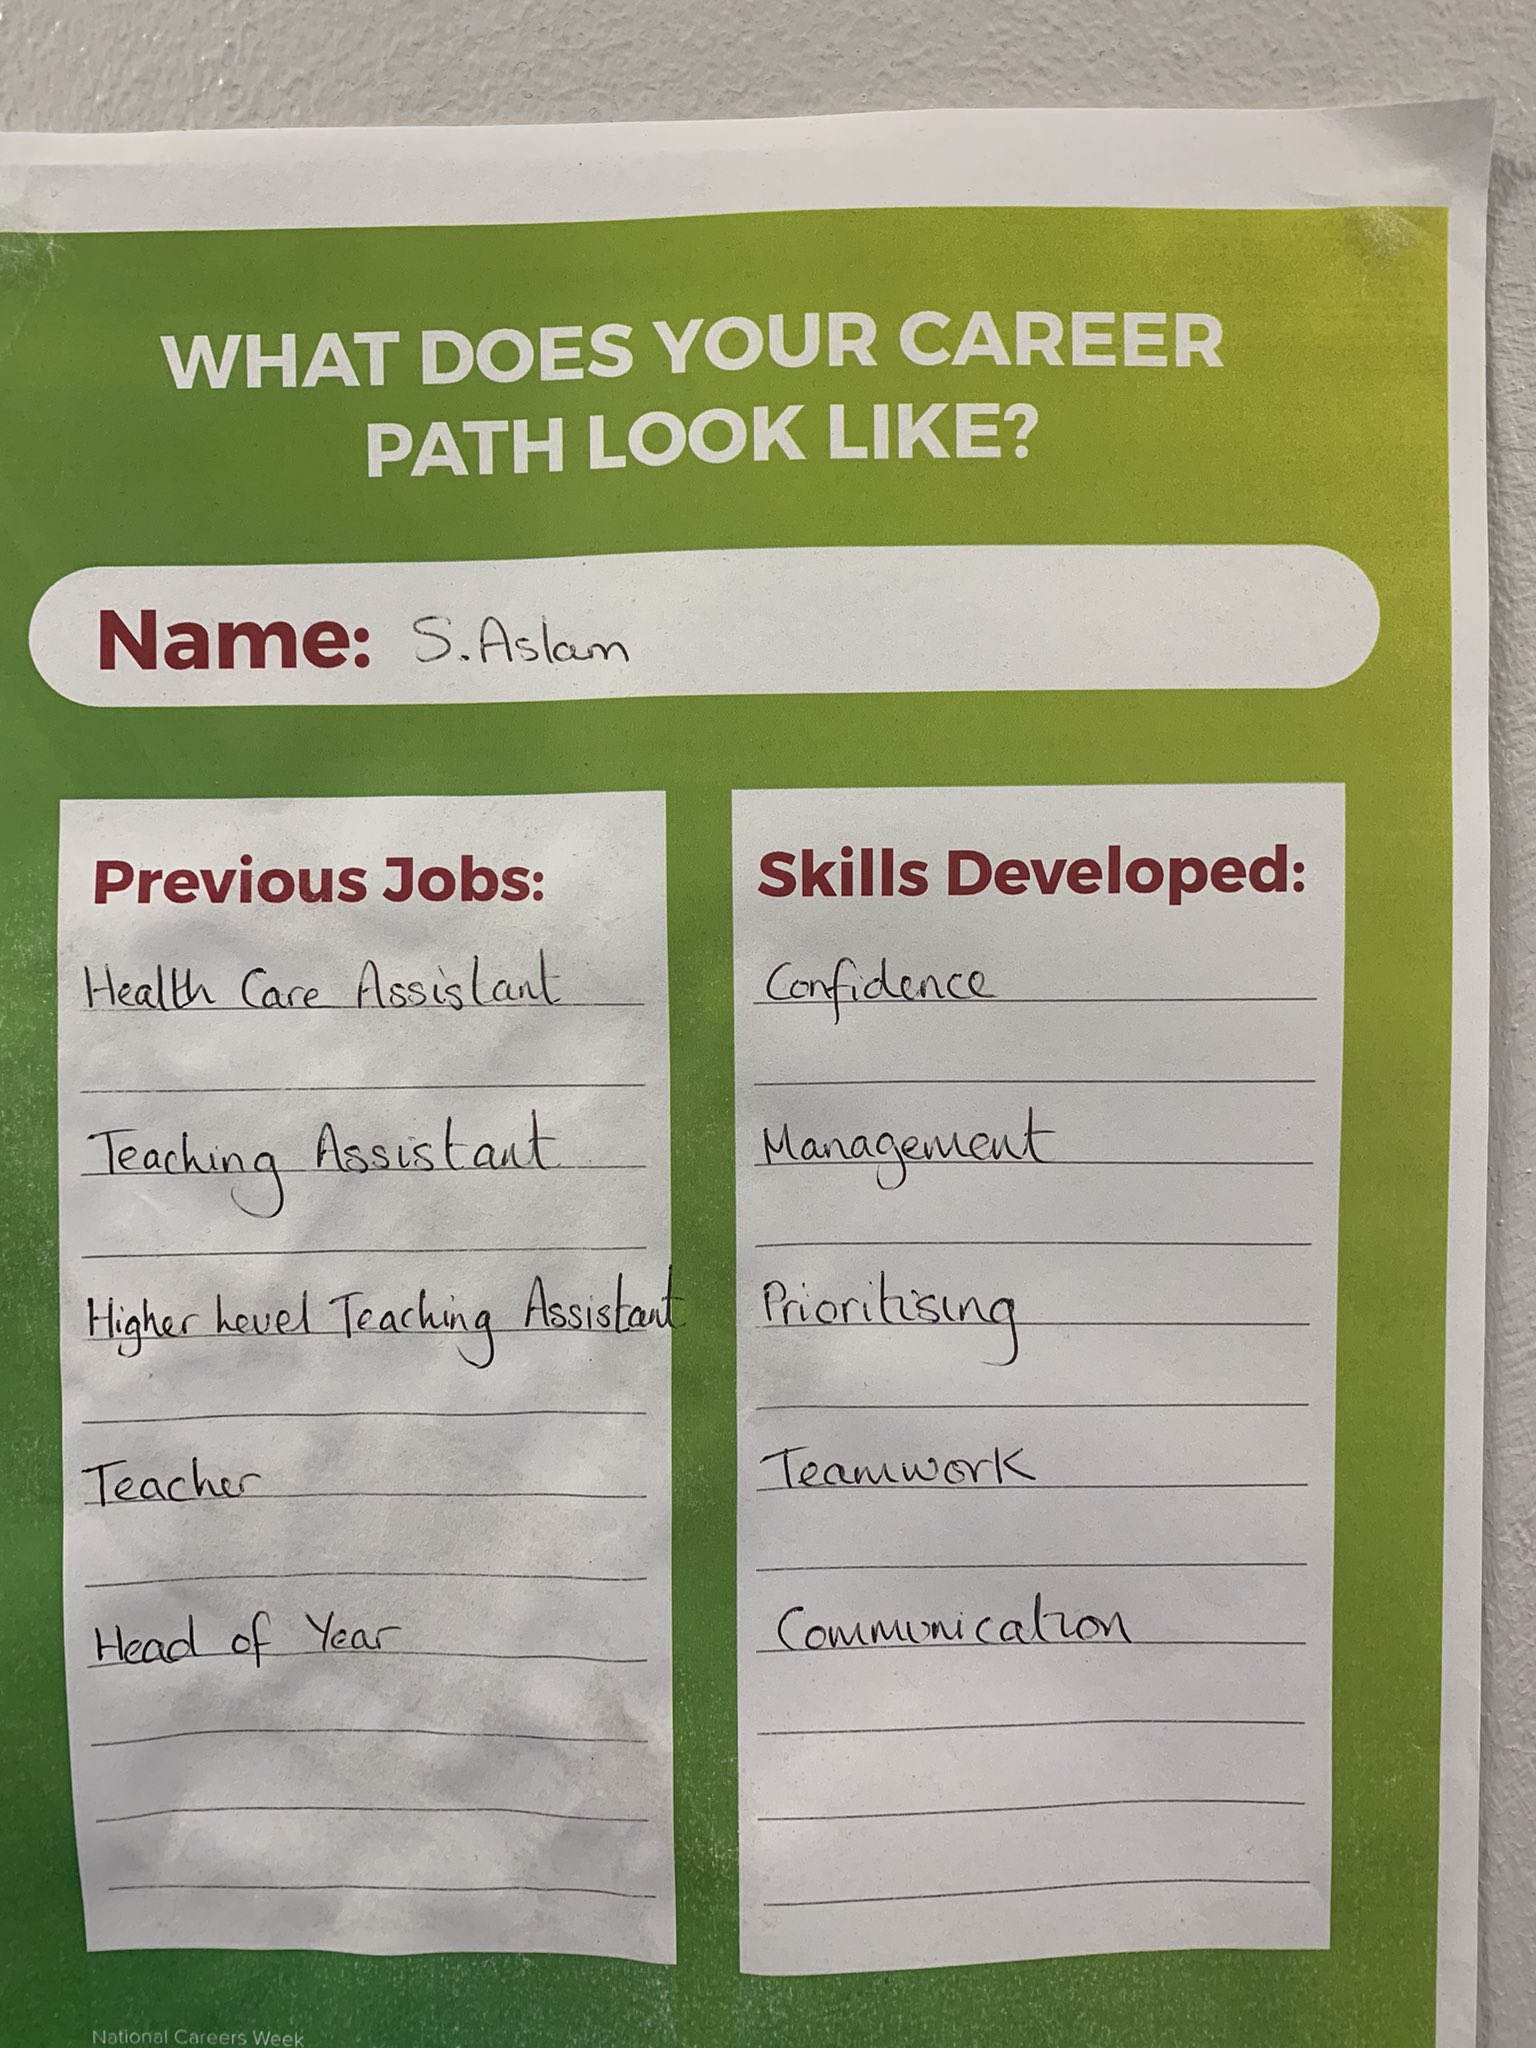 WHAT DOES YOUR CAREER
PATH LOOK LIKE?
Name: S. Aslam
Previous Jobs:
Health Care Assistant
Teaching Assistant
Higher Level Teaching Assistant
Teacher
Head of Year
Skills Developed:
Confidence
Management
Prioritising
Teamwork
Communication
National Careers Week